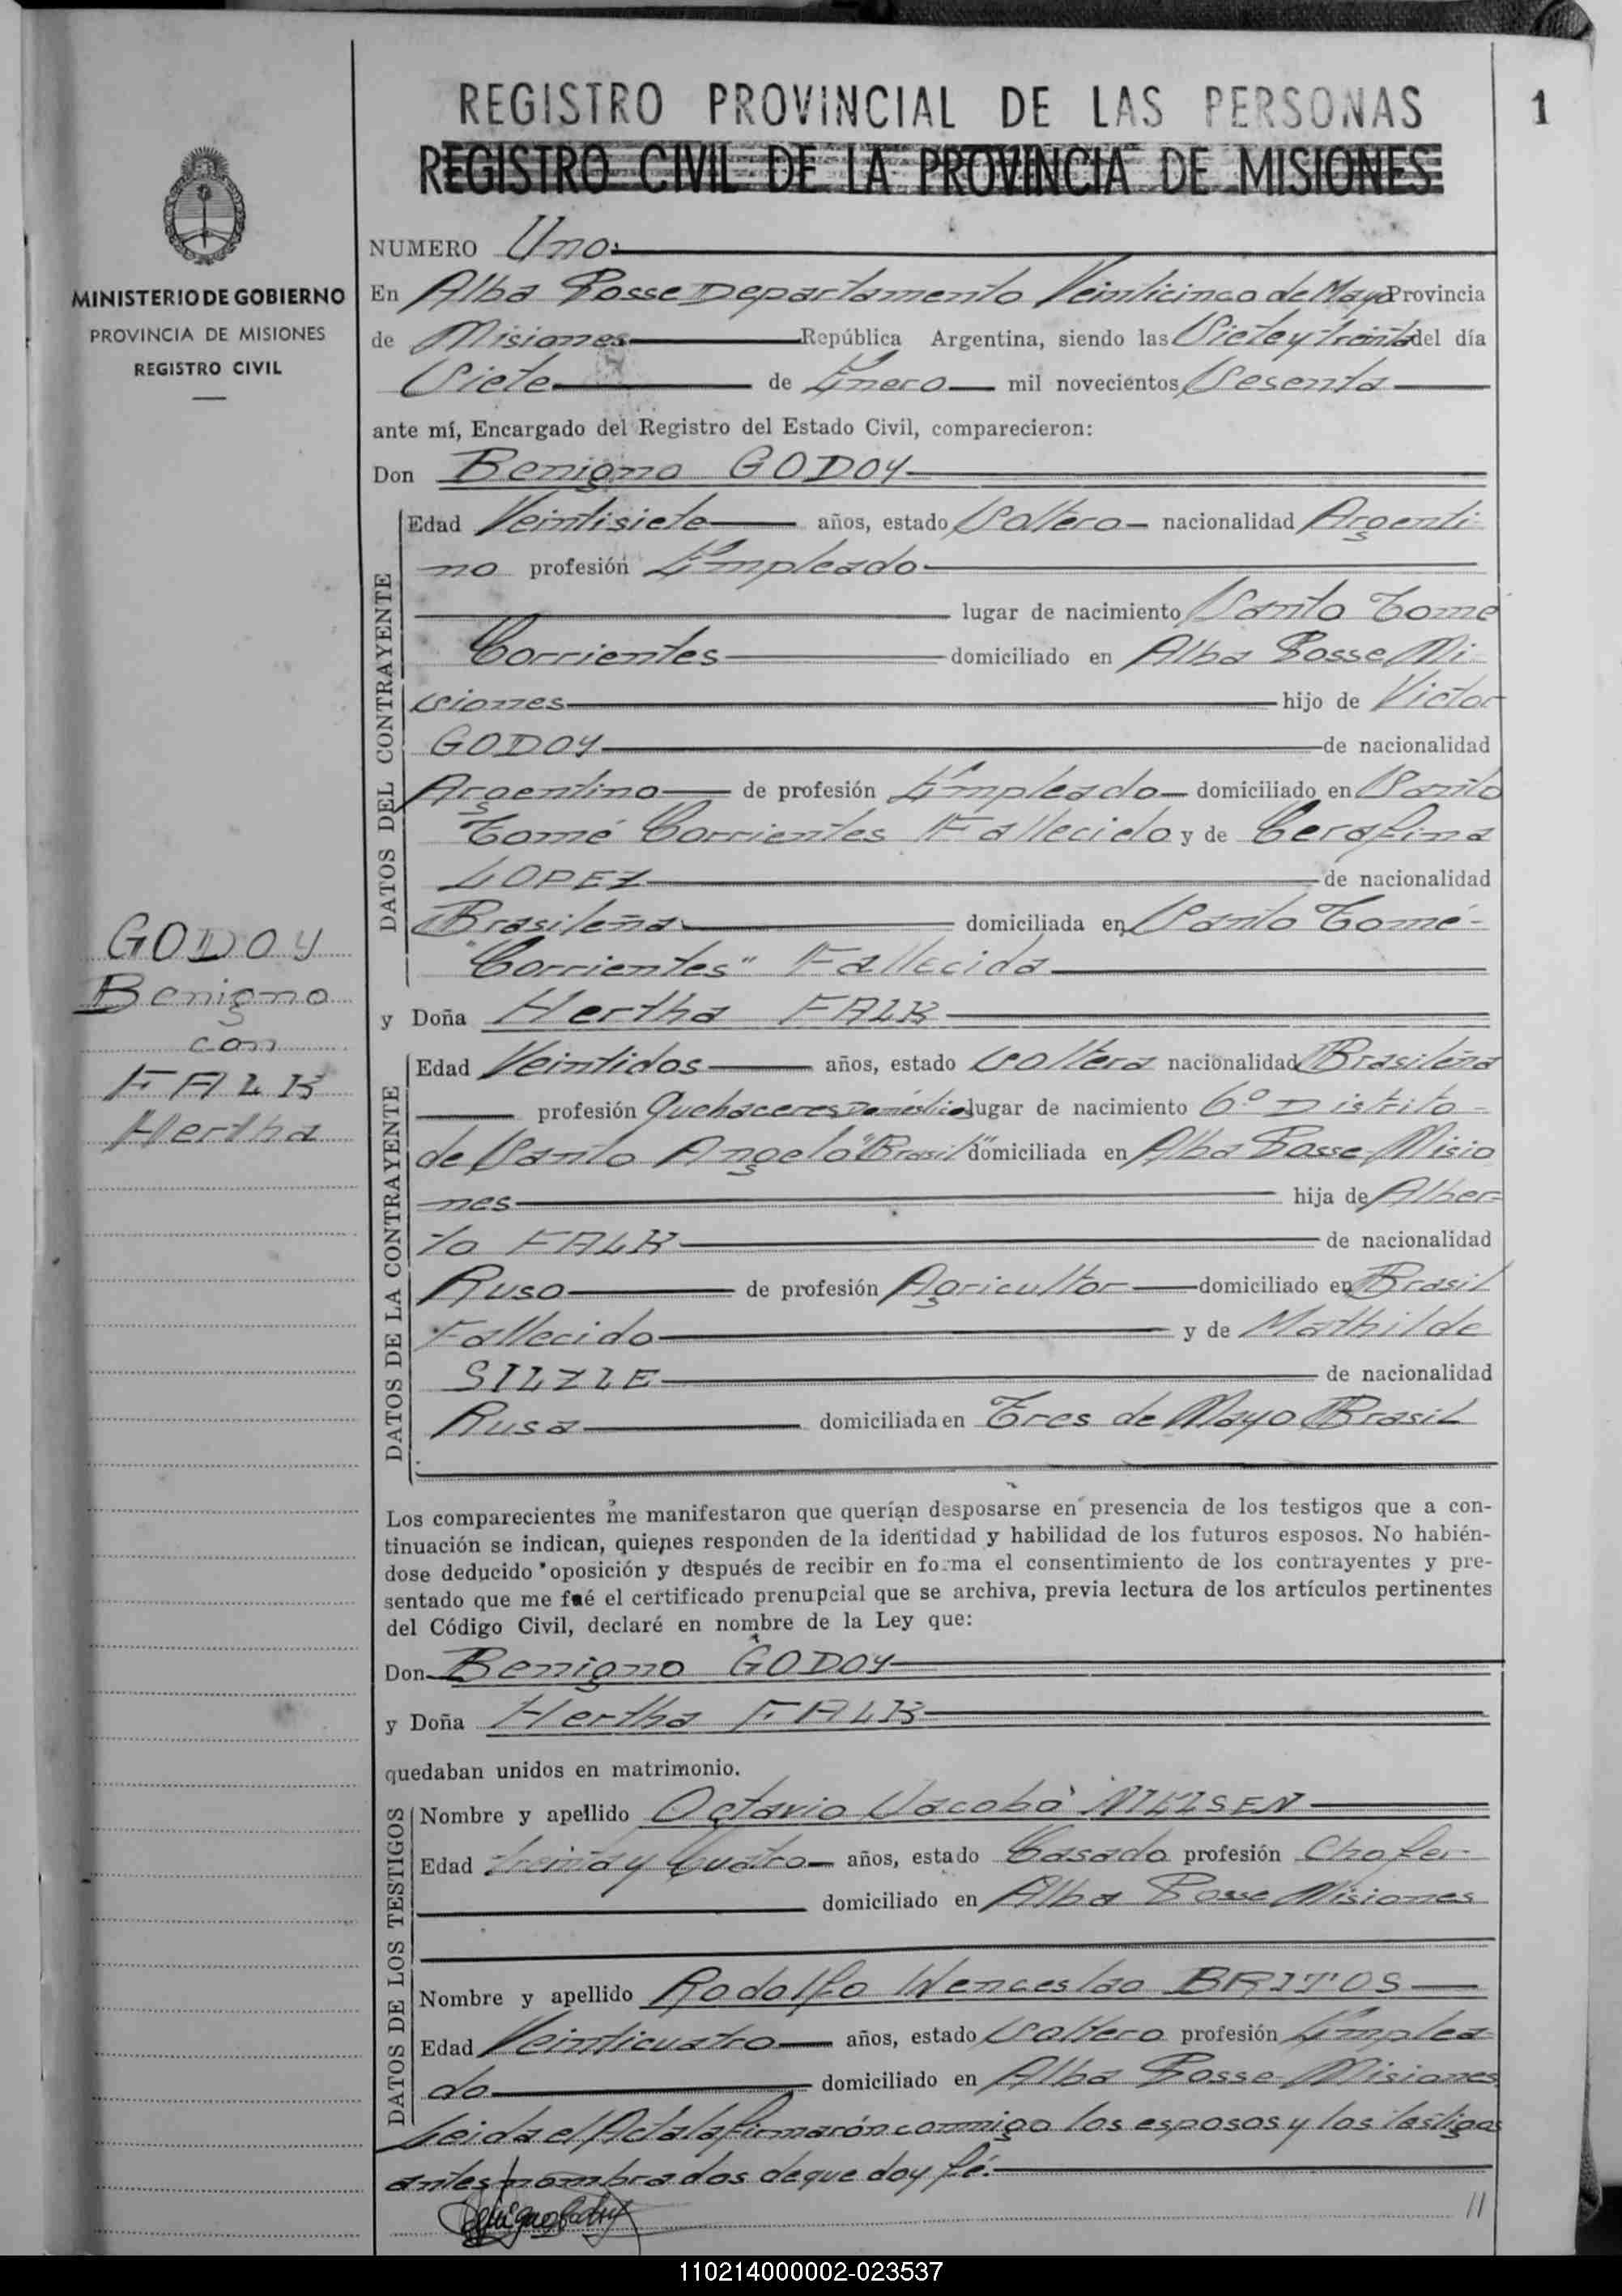 REGISTRO PROVINCIAL DE LAS PERSONAS
1
REGISTRO CIVIL DE LA PROVINCIA DE MISIONES
MINISTERIO DE GOBIERNO
PROVINCIA DE MISIONES
REGISTRO CIVIL
NUMERO Uno
En Alba Posse Departamento Veinticinco de Mayo Provincia
de Misiones República Argentina, siendo las Siete y treinta del día
Siete de Enero mil novecientos Sesenta
ante mí, Encargado del Registro del Estado Civil, comparecieron:
Don Benigno GODOY
DATOS DEL CONTRAYENTE
Edad Veintisiete años, estado Soltero nacionalidad Argenti-
no profesión Empleado
lugar de nacimiento Santo Tome
Corrientes domiciliado en Alba Posse Mi-
siones hijo de Victor
GODOY de nacionalidad
Argentino de profesión Empleado domiciliado en Santo
Tomé Corrientes Fallecido y de Cerafina
LOPEZ de nacionalidad
Brasileña domiciliada en Santo Tomé-
"Corrientes" Fallecida
GODOY
Benigno
con
FALK
Hertha
y Doña Hertha FALK
DATOS DE LA CONTRAYENTE
Edad Veintidos años, estado soltera nacionalidad Brasileña
profesión Quehaceres Domésticos lugar de nacimiento 6º Distrito-
de Santo Angelo "Brasil" domiciliada en Alba Posse Misio
nes hija de Alber=
to FALK de nacionalidad
Ruso de profesión Agricultor domiciliado en Brasil
Fallecido y de Mathilde
SILZLE de nacionalidad
Rusa domiciliada en Tres de Mayo Brasil
Los comparecientes me manifestaron que querían desposarse en presencia de los testigos que a con-
tinuación se indican, quienes responden de la identidad y habilidad de los futuros esposos. No habién-
dose deducido oposición y después de recibir en forma el consentimiento de los contrayentes y pre-
sentado que me fué el certificado prenupcial que se archiva, previa lectura de los artículos pertinentes
del Código Civil, declaré en nombre de la Ley que:
Don Benigno GODOY
y Doña Hertha FALK
quedaban unidos en matrimonio.
DATOS DE LOS TESTIGOS
Nombre y apellido Octavio Jacobo NILSEN
Edad treinta y Cuatro años, estado Casado profesión Chofer-
domiciliado en Alba Posse Misiones
Nombre y apellido Rodolfo Wenceslao BRITOS
Edad Veinticuatro años, estado Soltero profesión Emplea-
do domiciliado en Alba Posse Misiones
Leida el Acta la firmarón conmigo los esposos y los testigos
antes nombrados de que doy fé.
//
110214000002-023537